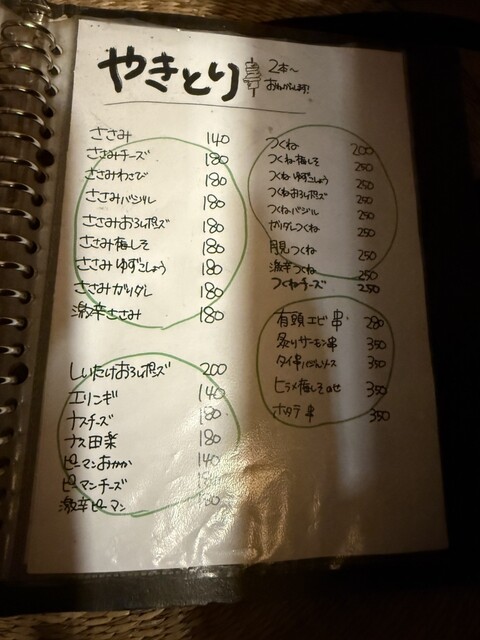 やきとり
2本〜
お願いします!
ささみ 140
ささみチーズ 180
ささみわさび 180
ささみバジル 180
ささみおろしポン酢 180
ささみ梅しそ 180
ささみゆずこしょう 180
ささみガリダレ 180
激辛ささみ 180
しいたけおろしポン酢 200
エリンギ 140
ナスチーズ 180
ナス田楽 180
ピーマンおかか 140
ピーマンチーズ
激辛ピーマン
つくね 200
つくね梅しそ 250
つくねゆずこしょう 250
つくねおろしポン酢 250
つくねバジル 250
ガリダレつくね 250
月見つくね 250
激辛つくね 250
つくねチーズ 250
有頭エビ串 280
炙りサーモン串 350
タイ串バジルソース 350
ヒラメ梅しそのせ 350
ホタテ串 350